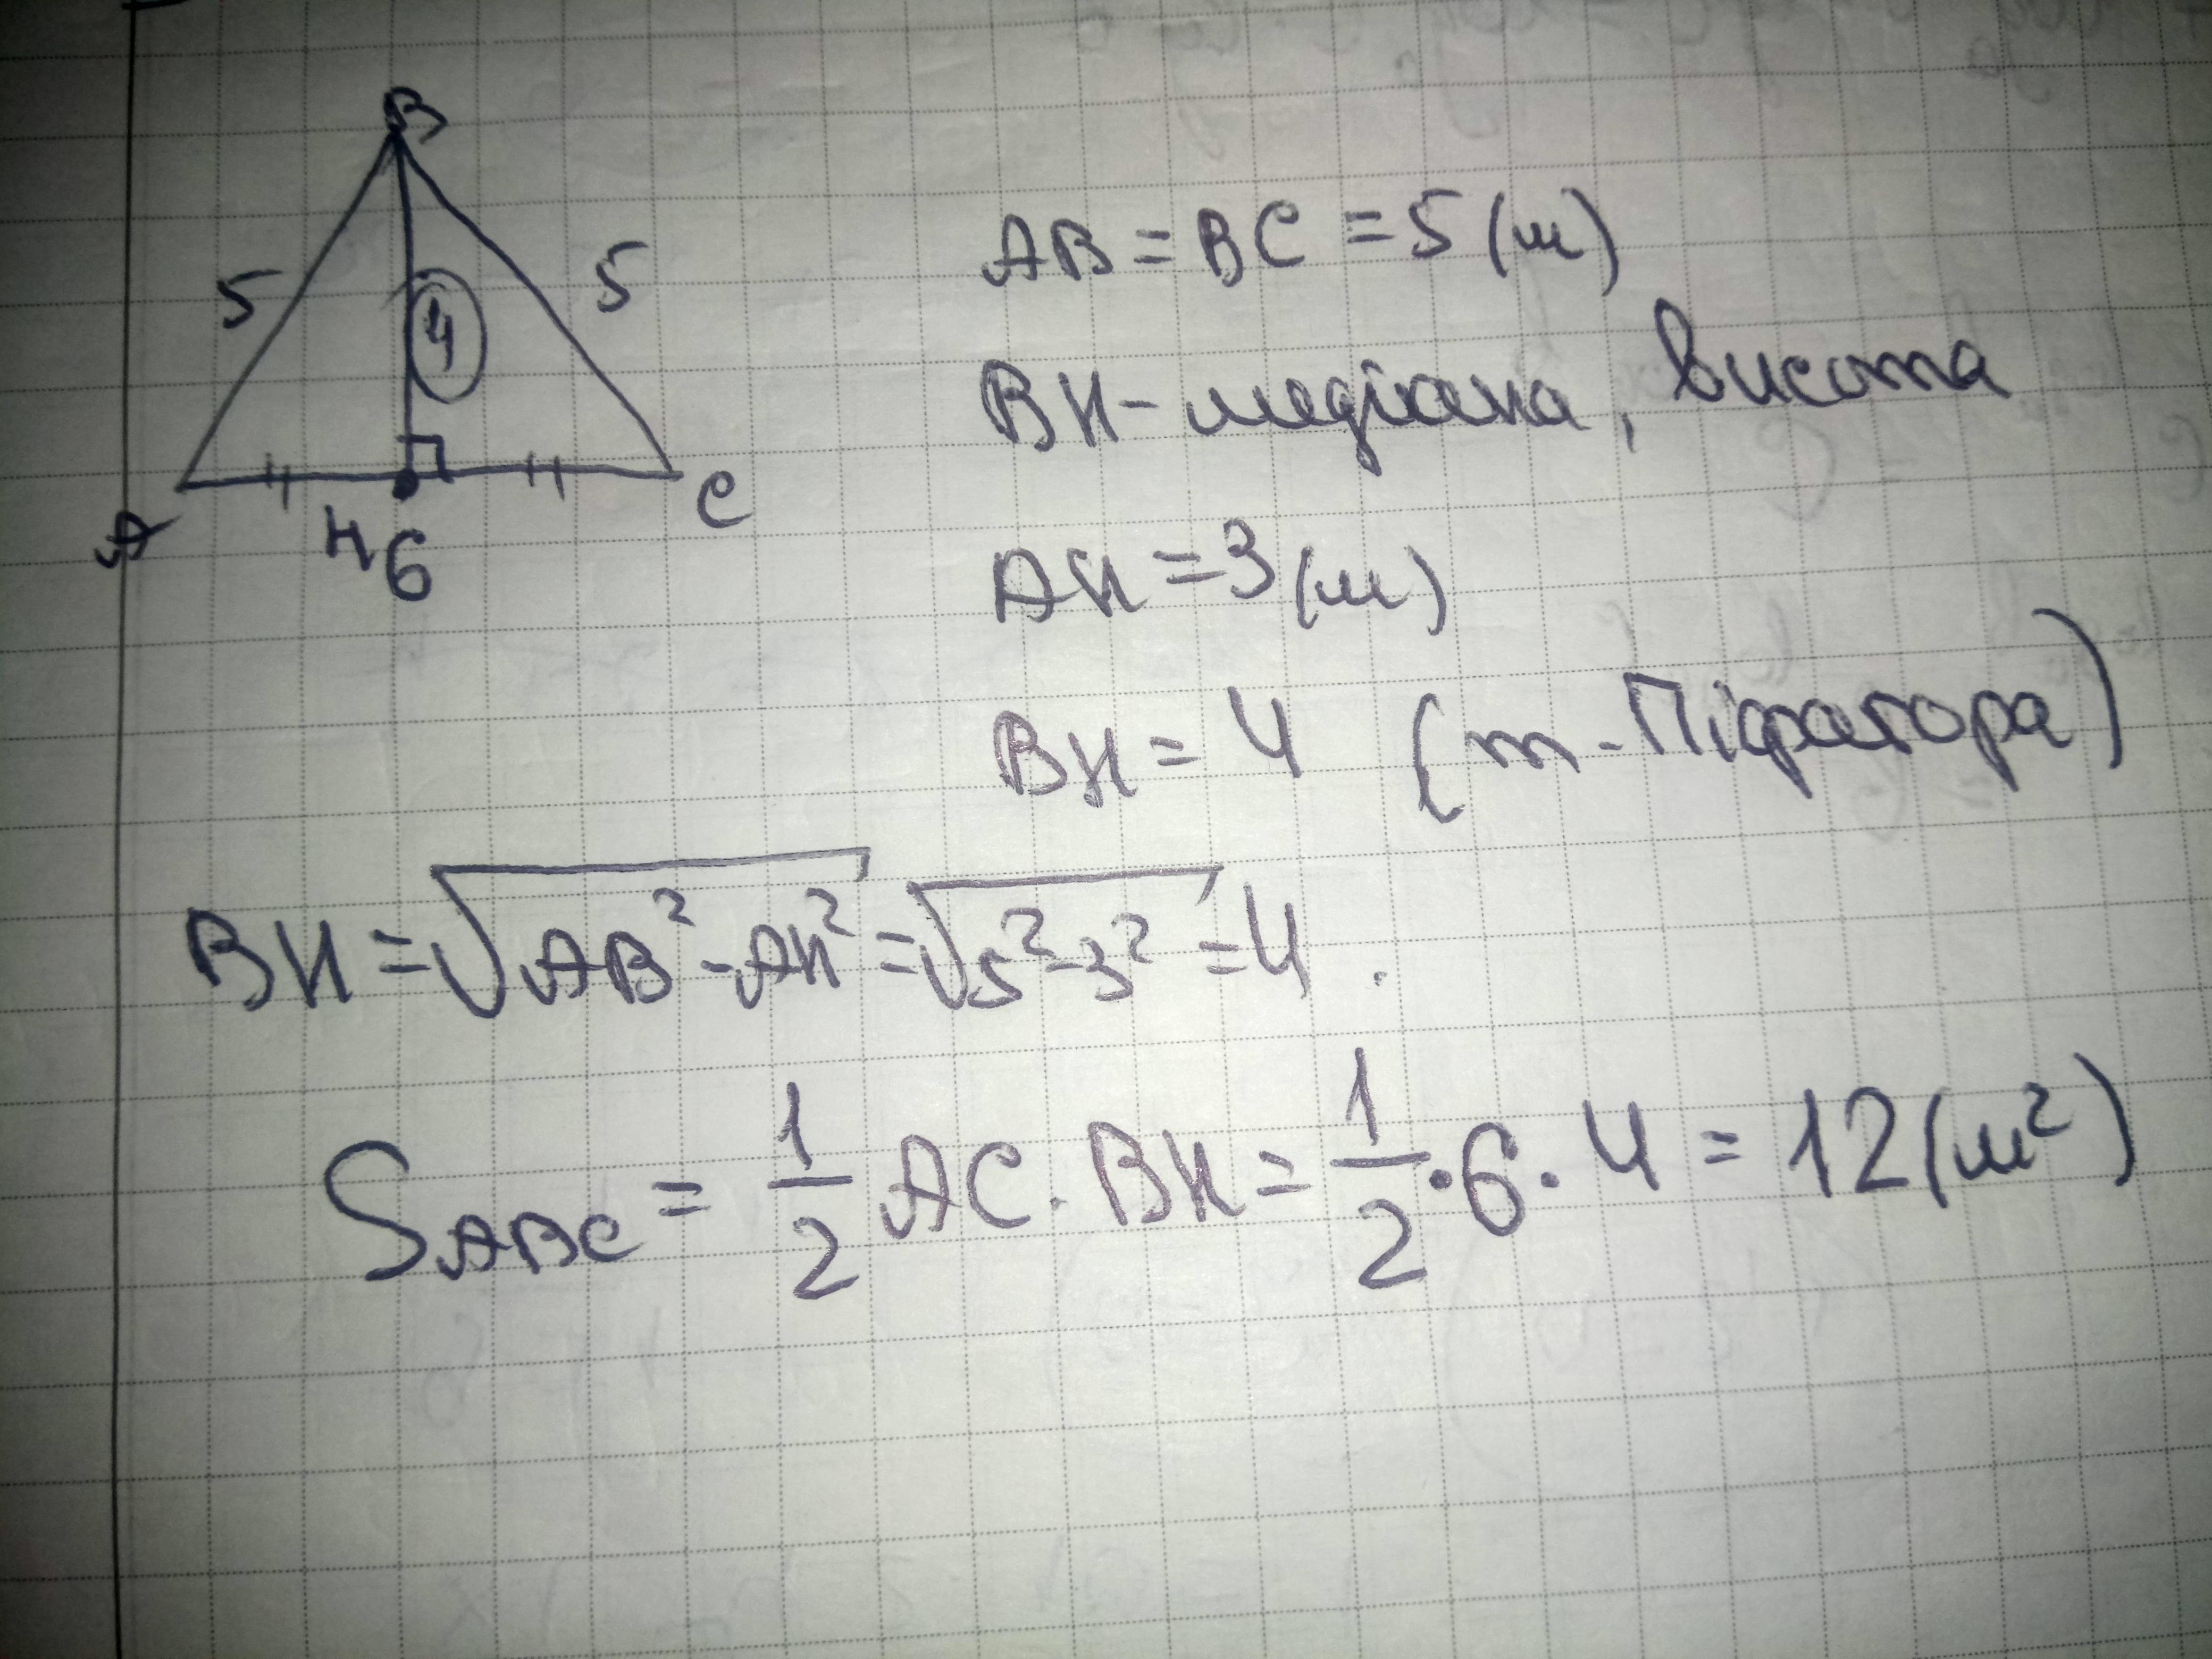 B
5
5
4
A
H
6
C
AB = BC = 5 (м)
BH - медіана, висота
AH = 3 (м)
BH = 4 (т. Піфагора)
BH = √AB² - AH² = √5² - 3² = 4.
S ABC = 1/2 AC · BH = 1/2 · 6 · 4 = 12 (м²)